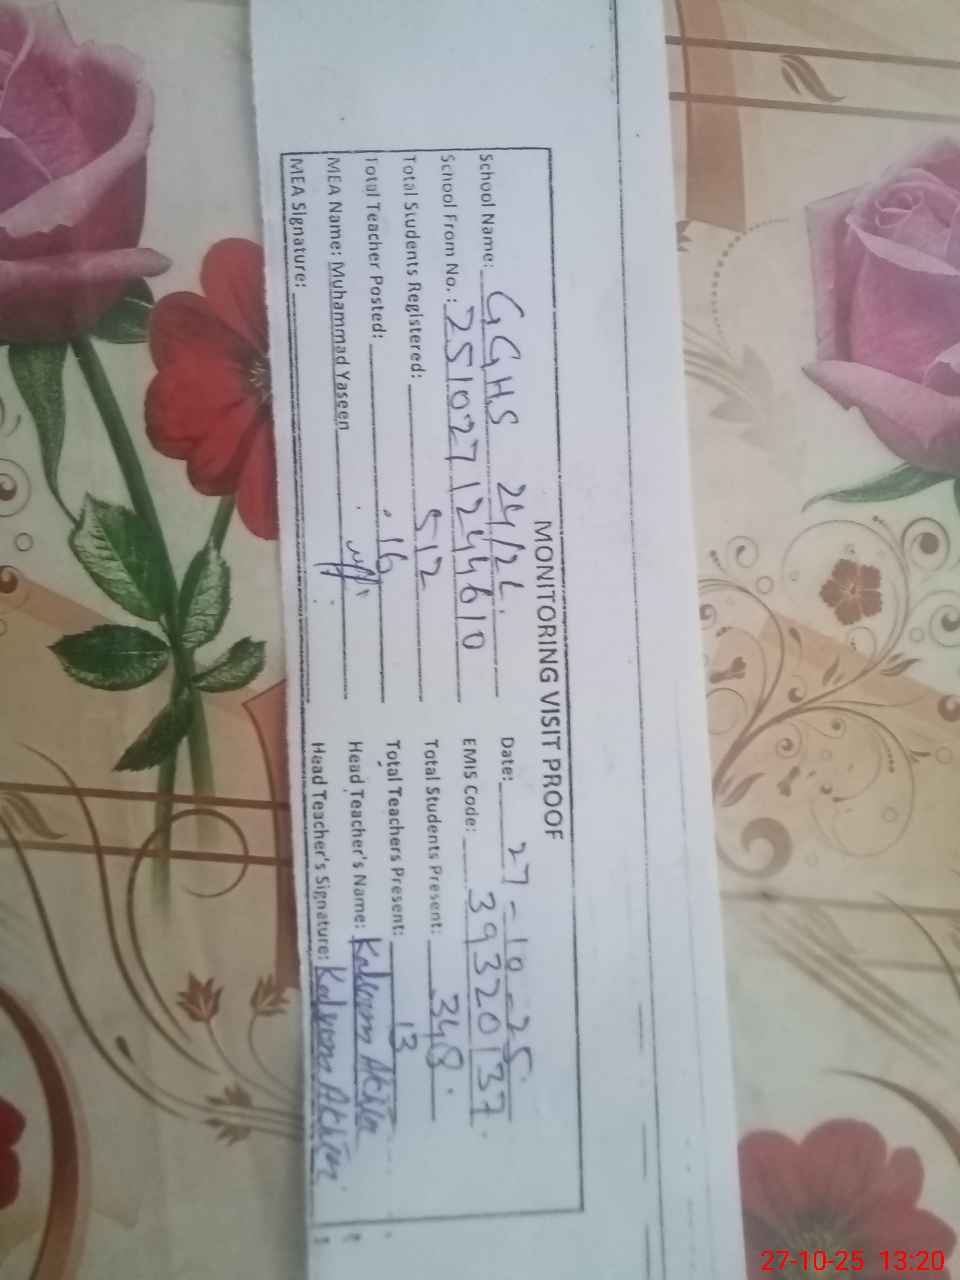 MONITORING VISIT PROOF
School Name: GGHS 24/2L. Date: 27-10-25.
School From No.: 2510271244610 EMIS Code: 39320137.
Total Students Registered: 512 Total Students Present: 348.
Total Teacher Posted: 16 Total Teachers Present: 13
MEA Name: Muhammad Yaseen Head Teacher's Name: Kalsoom Akhtar
MEA Signature: Head Teacher's Signature: Kalsoom Akhtar
27-10-25 13:20